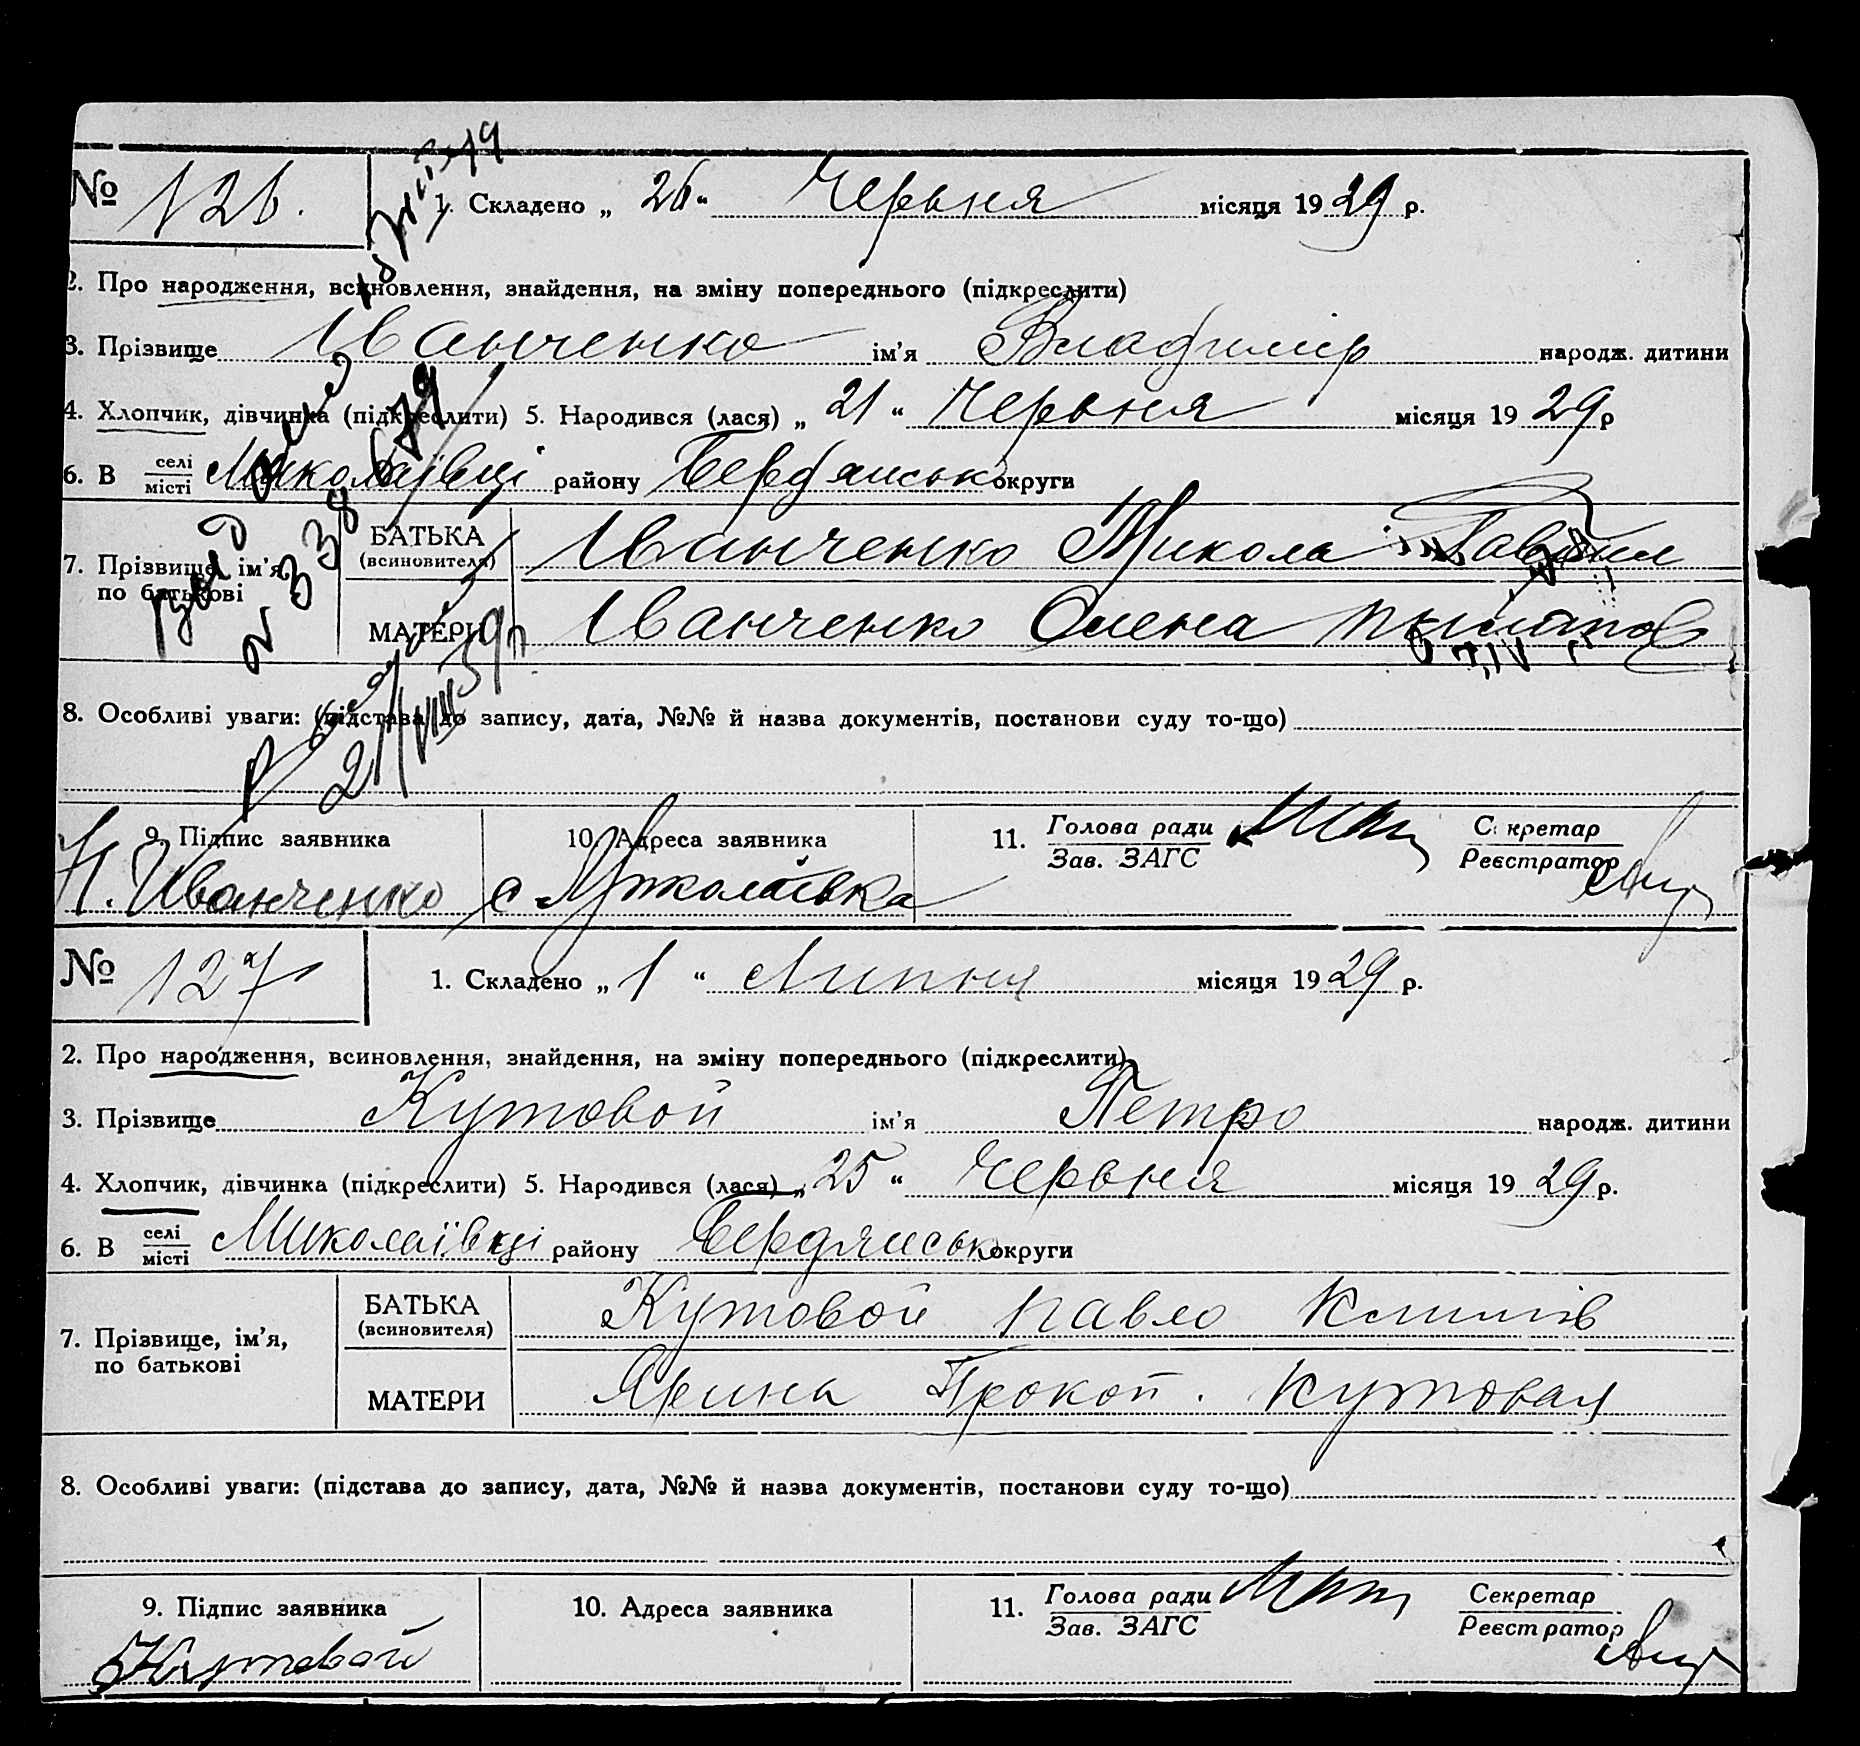 № 126. 1. Складено „ 26 “ Червня місяця 1929 р.
2. Про народження, всиновлення, знайдення, на зміну попереднього (підкреслити)
3. Прізвище Іванченко ім'я Владимір народж. дитини
4. Хлопчик, дівчинка (підкреслити) 5. Народився (лася) „ 21 “ Червня місяця 1929 р
6. В селі місті Миколаївці району Бердянськ округи
7. Прізвище, ім'я, по батькові
БАТЬКА (всиновителя) Іванченко Микола
МАТЕРИ Іванченко Олена
8. Особливі уваги: (підстава до запису, дата, №№ й назва документів, постанови суду то-що)
9. Підпис заявника 10. Адреса заявника 11. Голова ради Зав. ЗАГС Секретар Реєстратор
Н. Иванченко с Миколаївка
№ 127 1. Складено „ 1 “ Липня місяця 1929 р.
2. Про народження, всиновлення, знайдення, на зміну попереднього (підкреслити)
3. Прізвище Кутовой ім'я Петро народж. дитини
4. Хлопчик, дівчинка (підкреслити) 5. Народився (лася) „ 25 “ Червня місяця 1929 р.
6. В селі місті Миколаївці району Бердянськ округи
7. Прізвище, ім'я, по батькові
БАТЬКА (всиновителя) Кутовой Павло Климів
МАТЕРИ Ярина Прокоп. Кутовая
8. Особливі уваги: (підстава до запису, дата, №№ й назва документів, постанови суду то-що)
9. Підпис заявника 10. Адреса заявника 11. Голова ради Зав. ЗАГС Секретар Реєстратор
Кутовой